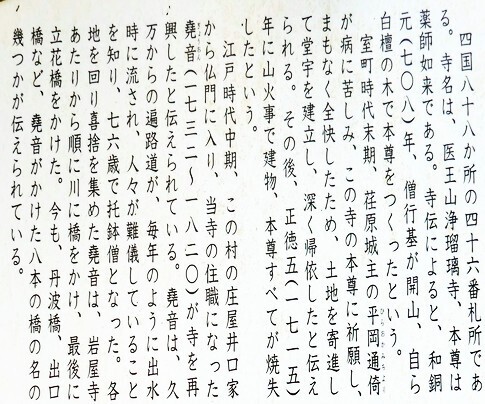 四国八十八か所の四十六番札所であ
る。寺名は、医王山浄瑠璃寺、本尊は
薬師如来である。寺伝によると、和銅
元(七〇八)年、僧行基が開山、自ら
白檀の木で本尊をつくったという。
室町時代末期、荏原城主の平岡通倚
が病に苦しみ、この寺の本尊に祈願し、
まもなく全快したため、土地を寄進し
て堂宇を建立し、深く帰依したと伝え
られる。その後、正徳五(一七一五)
年に山火事で建物、本尊すべてが焼失
したという。
江戸時代中期、この村の庄屋井口家
から仏門に入り、当寺の住職になった
堯音(一七三二〜一八二〇)が寺を再
興したと伝えられている。堯音は、久
万からの遍路道が、毎年のように出水
時に流され、人々が難儀していること
を知り、七六歳で托鉢僧となった。各
地を回り喜捨を集めた堯音は、岩屋寺
あたりから順に川に橋をかけ、最後に
立花橋をかけた。今も、丹波橋、出口
橋など、堯音がかけた八本の橋の名の
幾つかが伝えられている。